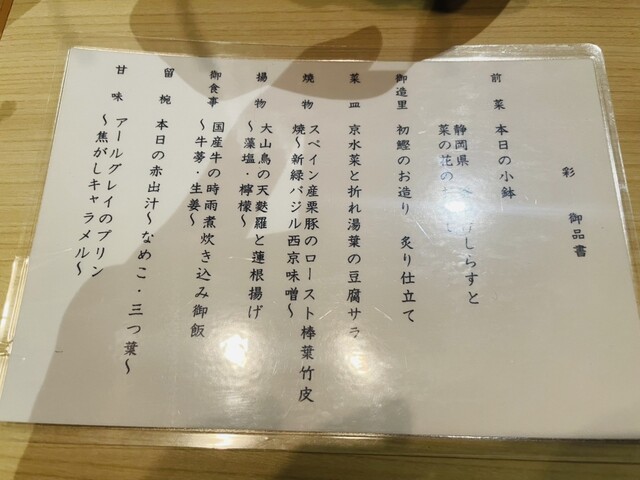 彩 御品書
前菜 本日の小鉢
静岡県 げしらすと
菜の花の
御造里 初鰹のお造り 炙り仕立て
菜皿 京水菜と折れ湯葉の豆腐サラ
焼物 スペイン産栗豚のロースト棒葉竹皮
焼〜新緑バジル西京味噌〜
揚物 大山鳥の天麩羅と蓮根揚げ
〜藻塩・檸檬〜
御食事 国産牛の時雨煮炊き込み御飯
〜牛蒡・生姜〜
留椀 本日の赤出汁〜なめこ・三つ葉〜
甘味 アールグレイのプリン
〜焦がしキャラメル〜